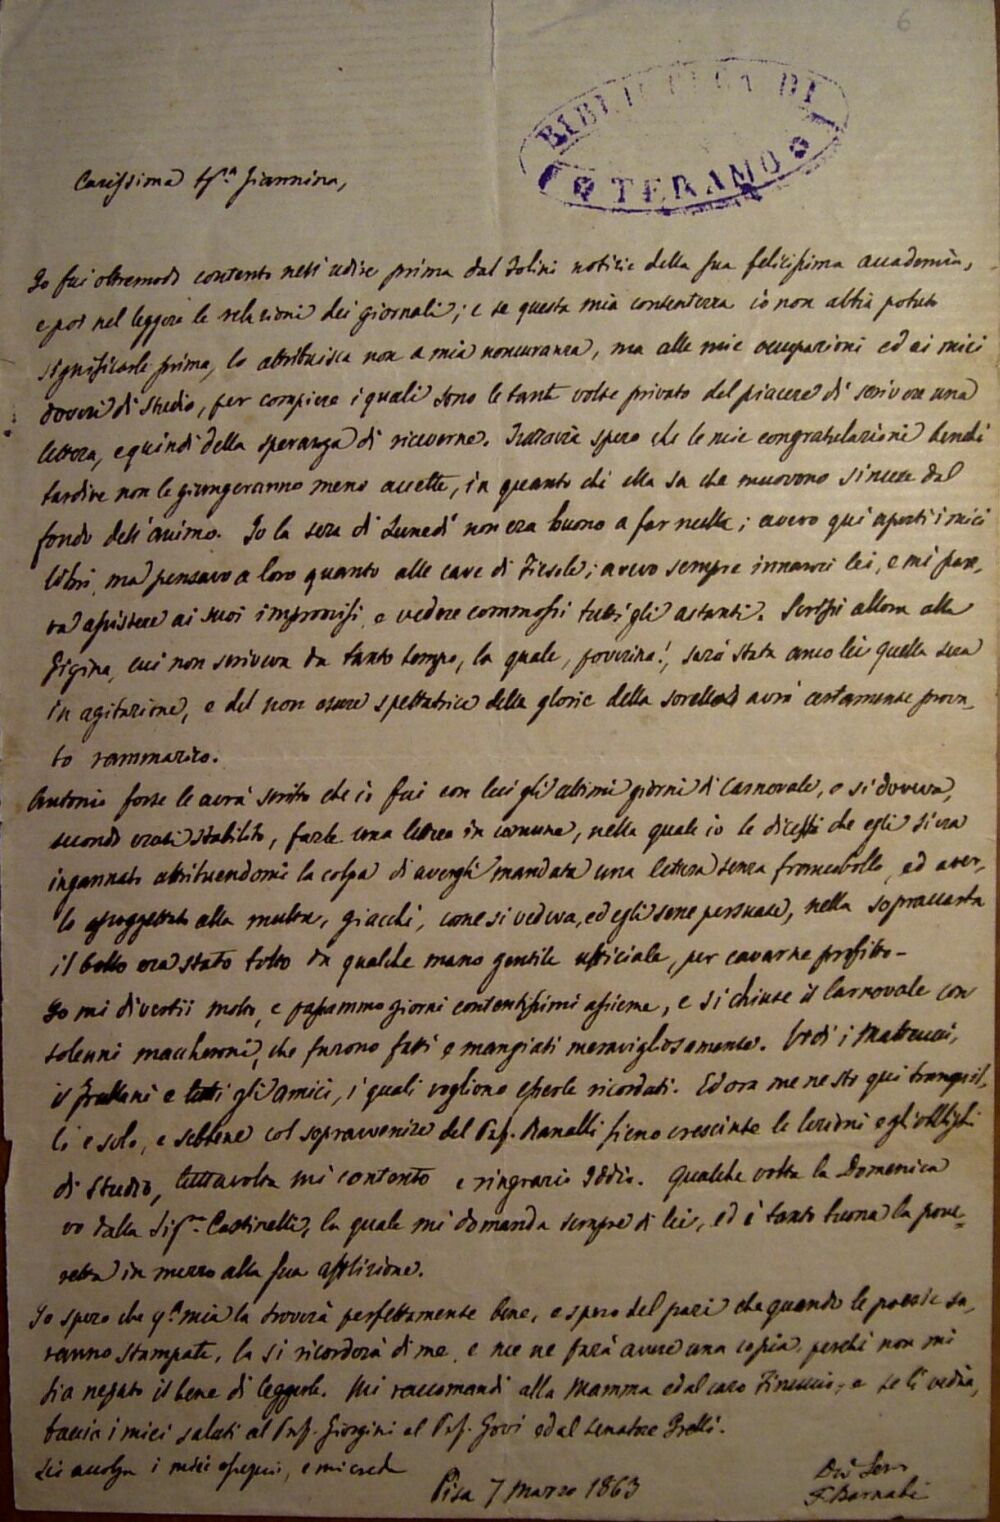 6
BIBLIOTECA DI
TERAMO
Carissima Sig.ª Giannina,
Io fui oltremodo contento nell'udire prima dal Solini notizie della sua felicissima accademia,
e poi nel leggere le relazioni dei giornali; e se questa mia contentezza io non abbia potuto
significarle prima, lo attribuisca non a mia noncuranza, ma alle mie occupazioni ed ai miei
doveri di studio, per compiere i quali sono le tante volte privato del piacere di scrivere una
lettera, e quindi della speranza di riceverne. Tuttavia spero che le mie congratulazioni benchè
tardive non le giungeranno meno accette, in quanto chè ella sa che muovono sincere dal
fondo dell'animo. Io la sera di Lunedì non era buono a far nulla; avevo qui aperti i miei
libri, ma pensavo a loro quanto alle cave di Fiesole; avevo sempre innanzi lei, e mi pare,
va assistere ai suoi improvvisi, e vedere commossi tutti gli astanti. Scrissi allora alla
Gigina, cui non scriveva da tanto tempo, la quale, poverina!, sarà stata anco lei quella sera
in agitazione, e del non essere spettatrice delle glorie della sorella avrà certamente prova,
to rammarico.
Antonio forse le avrà scritto che io fui con lui gli ultimi giorni di Carnovale, e si doveva,
secondo erasi stabilito, farle una lettera in comune, nella quale io le dicessi che egli si era
ingannato attribuendomi la colpa di avergli mandata una lettera senza francobollo, ed aver,
lo assoggettato alla multa, giacchè, come si vedeva, ed egli sene persuase, nella sopraccarta
il bollo era stato tolto da qualche mano gentile ufficiale, per cavarne profitto –
Io mi divertii molto, e passammo giorni contentissimi assieme, e si chiuse il Carnovale con
solenni maccheroni, che furono fatti e mangiati meravigliosamente. Vedi i Matteucci,
il Frullani e tutti gli amici, i quali vogliono esserle ricordati. Ed ora me ne sto qui tranquil,
lo e solo, e sebbene col sopravvenire del Prof. Ranalli sieno cresciute le lezioni e gli obblighi
di studio, tuttavolta mi contento e ringrazio Iddio. Qualche volta la Domenica
vo dalla Sig.ra Castinelli, la quale mi domanda sempre di lei, ed è tanto buona la pove-
retta in mezzo alla sua afflizione.
Io spero che q.ª mia la troverà perfettamente bene, e spero del pari che quando le poesie sa,
ranno stampate, la si ricorderà di me, e me ne farà avere una copia, perchè non mi
sia negato il bene di leggerle. Mi raccomandi alla Mamma ed al caro e se li vedrà,
faccia i miei saluti al Prof. Giorgini al Prof. Govi ed al senatore
Lei accolga i miei ossequi, e mi creda
Pisa 7 Marzo 1863
F. Barnabei